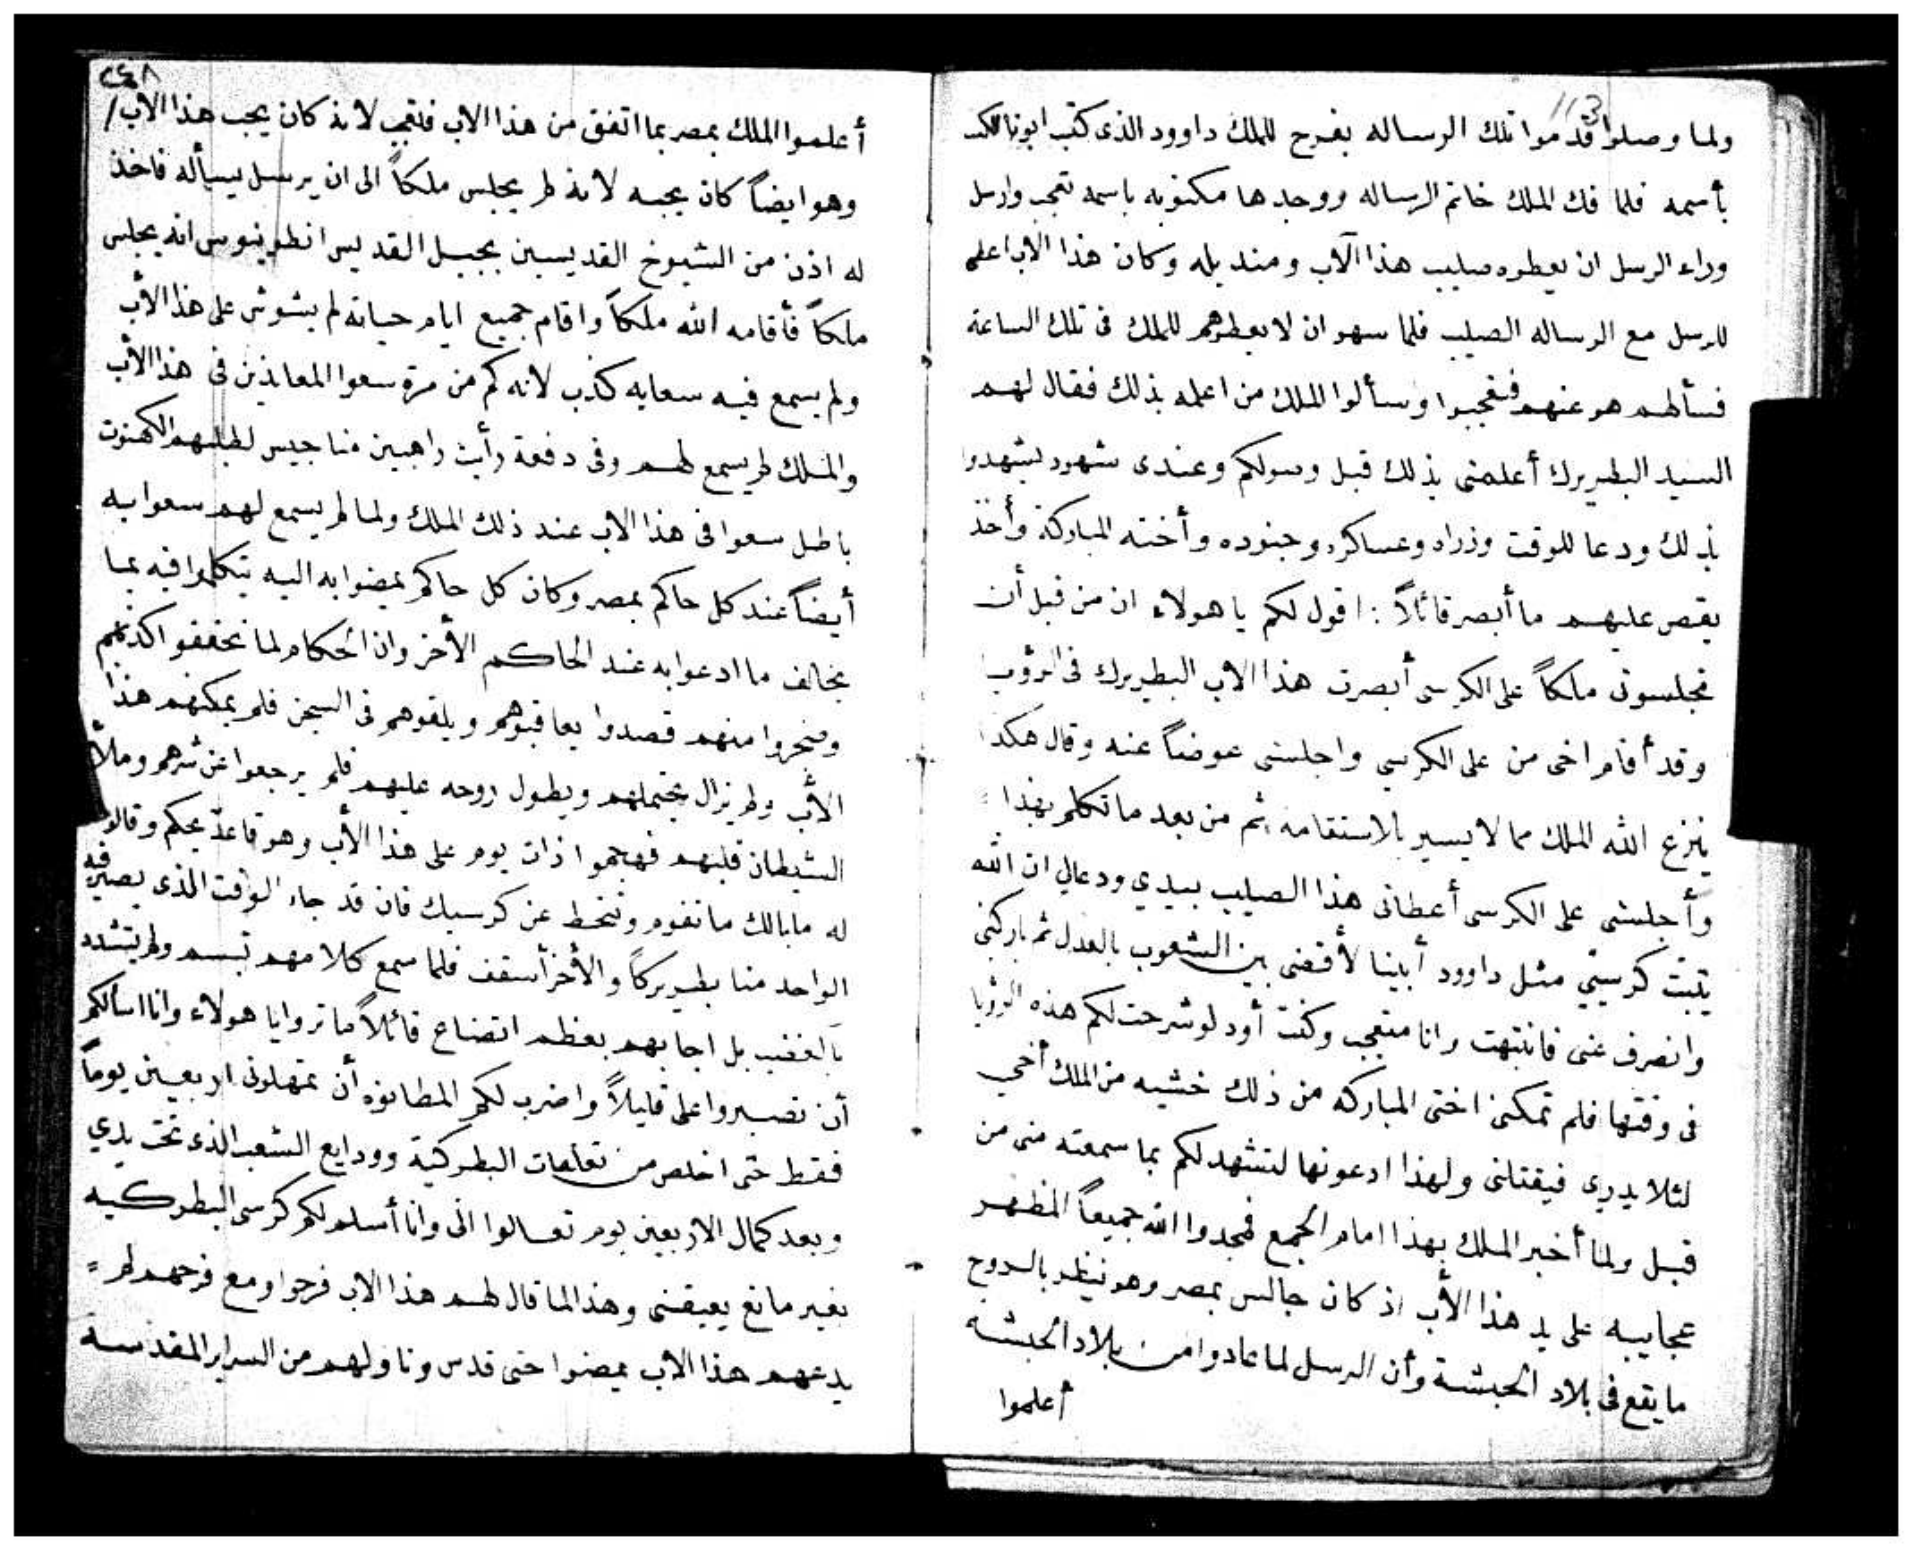 113
ولما وصلوا قدموا تلك الرساله بفرح للملك داوود الذى كتب ابونا
بأسمه فلما فك الملك خاتم الرساله ووجدها مكتوبه باسمه تعجب وارسل
وراء الرسل ان يعطوه صليب هذا الآب ومنديله وكان هذا الاب اعطى
للرسل مع الرساله الصليب فلما سهوا ان لا يعطوهم للملك فى تلك الساعة
فسألهم هو عنهم فتعجبوا وسألوا الملك من اعلمه بذلك فقال لهم
السيد البطريرك أعلمنى بذلك قبل وصولكم وعندى شهود يشهدوا
بذلك ودعا للوقت وزراه وعساكره وجنوده وأخته المباركة وأخذ
يقص عليهم ما أبصر قائلاً : اقول لكم يا هولاء ان من قبل أن
تجلسونى ملكاً على الكرسى أبصرت هذا الاب البطريرك فى الرؤيا
وقد أقام اخى من على الكرسي واجلسنى عوضاً عنه وقال هكذا
ينزع الله الملك مما لا يسير بالاستقامه ثم من بعد ما تكلم بهذا =
وأجلسنى على الكرسى أعطانى هذا الصليب بيدي ودعالي ان الله
يثبت كرسيّي مثل داوود أبينا لأقضى بين الشعوب بالعدل ثم باركنى
وانصرف عنى فانتبهت وانا متعجب وكنت أود لو شرحت لكم هذه الرؤيا
فى وقتها فلم تمكنى اختى المباركه من ذلك خشيه من الملك أخي
لئلا يدرى فيقتلنى ولهذا ادعونها لتشهد لكم بما سمعته منى من
قبل ولما أخبر الملك بهذا امام الجمع فمجدوا الله جميعاً المظهر
عجايبه على يد هذا الأب اذ كان جالس بمصر وهو ينظر بالروح
ما يقع فى بلاد الحبشة وأن الرسل لما عادوا من بلاد الحبشه
أعلموا
٢٤٨
أعلموا الملك بمصر بما اتفق من هذا الاب فتعجب لانه كان يحب هذا الاب /
وهو ايضاً كان يحبه لانه لم يجلس ملكاً الى ان يرسل يسأله فاخذ
له اذن من الشيوخ القديسين بجبل القديس انطونيوس انه يجلس
ملكاً فأقامه الله ملكاً واقام جميع ايام حياته لم يشوش على هذا الأب
ولم يسمع فيه سعايه كذب لأنه كم من مرة سعوا المعاندين فى هذا الأب
والملك لم يسمع لهم وفى دفعة رأيت راهبين لطلبهم الكهنوت
باطل سعوا فى هذا الاب عند ذلك الملك ولما لم يسمع لهم سعوا به
أيضاً عند كل حاكم بمصر وكان كل حاكم يمضوا به اليه يتكلموا فيه بما
يخالف ما ادعوا به عند الحاكم الأخر وان الحكام لما تحققوا اكذبهم
وضجروا منهم قصدوا يعاقبوهم ويلقوهم فى السجن فلم يمكنهم هذا
الأب ولم يزال يحتملهم ويطول روحه عليهم فلم يرجعوا عن شرهم وملأ
الشيطان قلبهم فهجموا ذات يوم على هذا الأب وهو قاعد يحكم وقالوا
له ما بالك ما تقوم وتنحط عن كرسيك فان قد جاء الوقت الذى يصير فيه
الواحد منا بطريركاً والأخر أسقف فلما سمع كلامهم تبسم ولم يتشدد
بالغضب بل اجابهم بعظم اتضاع قائلاً ما تروا يا هولاء وانا اسألكم
أن تصبروا على قليلاً واضرب لكم المطانوه أن تمهلونى اربعين يوماً
فقط حتى اخلص من تعلقات البطركية وودايع الشعب الذى تحت يدي
وبعد كمال الاربعين يوم تعالوا الى وانا أسلم لكم كرسى البطركيه
بغير مانع يعيقنى وهذا لما قال لهم هذا الاب فرحوا ومع فرحهم لم =
يدعهم هذا الأب يمضوا حتى قدس وناولهم من السراير المقدسه